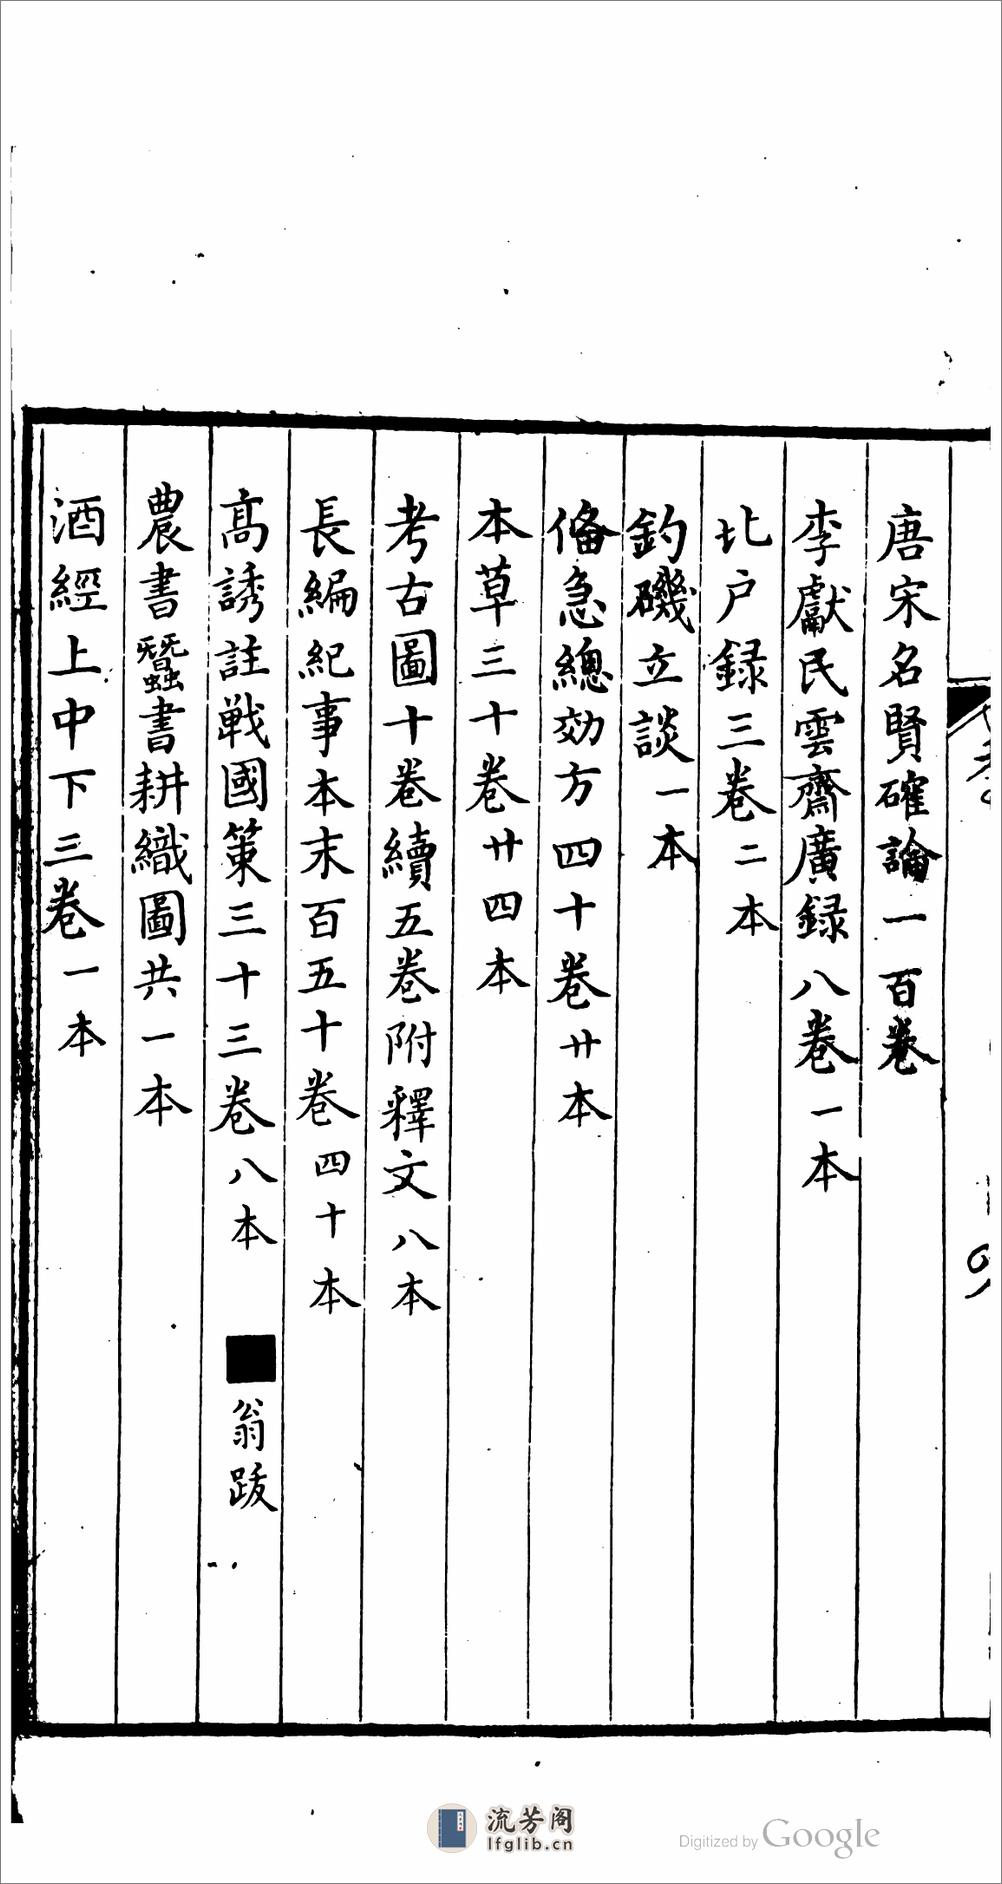 唐宋名賢確論一百卷
李獻民雲齋廣録八卷一本
北户録三卷二本
釣磯立談一本
俻急總効方四十卷廿本
本草三十卷廿四本
考古圖十卷續五卷附釋文八本
長編紀事本末百五十卷四十本
高誘註戰國策三十三卷八本 ■翁跋
農書蠶書耕織圖共一本
酒經上中下三卷一本
流芳阁
lfglib.cn
Digitized by Google